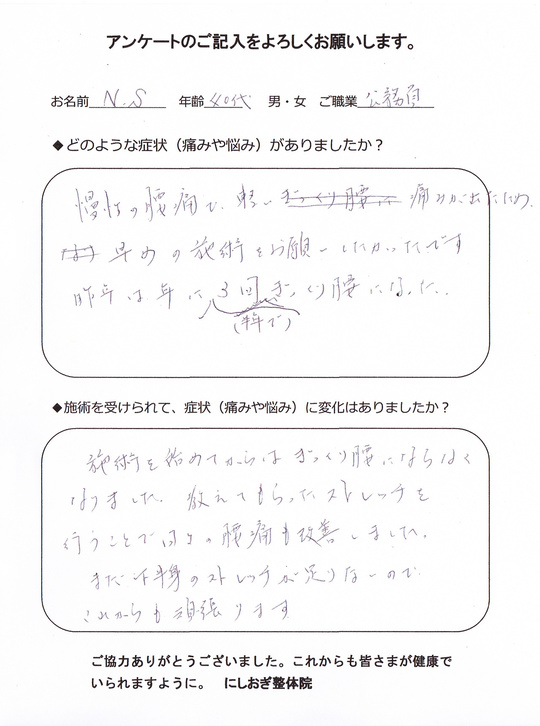 アンケートのご記入をよろしくお願いします。
お名前 N.S 年齢 40代 男・女 ご職業 公務員
◆どのような症状（痛みや悩み）がありましたか？
慢性の腰痛で、軽いぎっくり腰に 痛みが出たため、
早めの施術をお願いしたかったです
昨年は年に3回ぎっくり腰になった..
(半年で)
◆施術を受けられて、症状（痛みや悩み）に変化はありましたか？
施術を始めてからはぎっくり腰にならなく
なりました。教えてもらったストレッチを
行うことで日々の腰痛も改善しました。
まだ下半身のストレッチが足りないので
これからも頑張ります
ご協力ありがとうございました。これからも皆さまが健康で
いられますように。 にしおぎ整体院